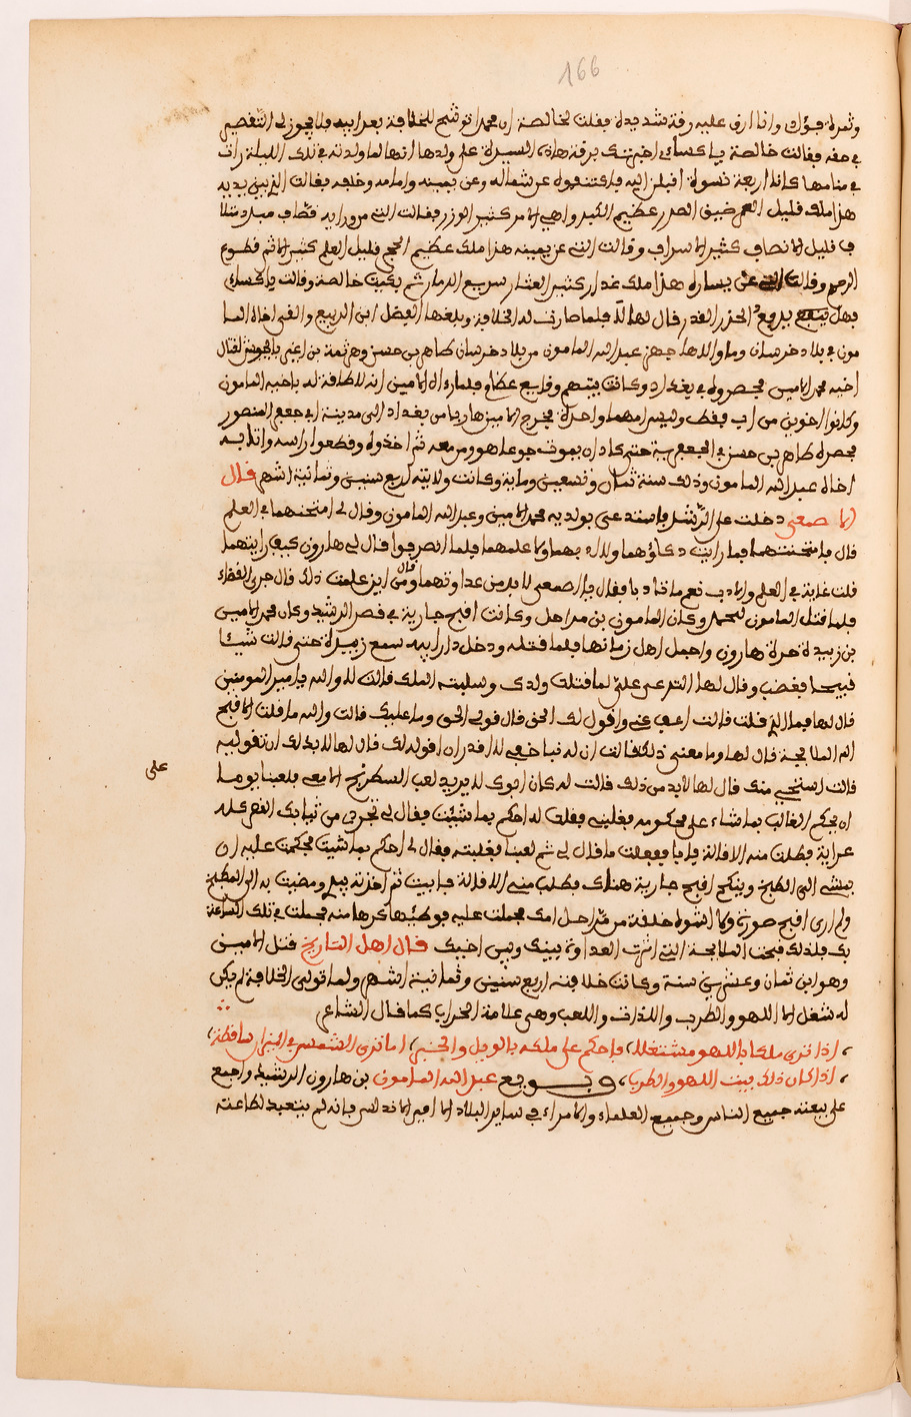 166
وثمرة فؤادي وانا ارق عليه رقة شديدة فقلت لخالصة ان محمدا ترشح للخلافة بعد ابيه فلا يجوز لي التقصير
في حقه فقالت خالصة يا كسائي اخبرتك برقة هذه السيدة على ولدها انها لما ولدته في تلك الليلة رات
في منامها كان اربعة نسوة اقبلن اليه فاكتنفوه عن شماله وعن يمينه وامامه وخلفه فقالت التي بين يديه
هذا ملك قليل العمر ضيق الصدر عظيم الكبر واهي الامر كثير الوزر فقالت التي من ورايه
قليل الانصاف كثير الاسراف وقالت التي عن يمينه هذا ملك عظيم قليل العلم كثير الاثم قطوع
الرحم وقالت التي عن يساره هذا ملك غدار كثير العثار سريع الدمار ثم بكيت خالصة وقالت يا كسائي
فهل ينفع الحذر القدر قال لها لا فلما صارت له الخلافة وبلغها الفضل ابن الربيع والقى اخاه الما
مون في بلاد خرسان وما والاها جهز عبد الله المامون من بلاد خرسان طاهر بن حسن وهرثمة بن اعين بالجيوش لقتال
اخيه محمد الامين فحصروه في بغداد وكانت بينهم وقايع عظام فلما راى الامين انه لا طاقة له باخيه المامون
وكانوا اخوين من اب فقط وليس امهما واحدة فخرج الامين هاربا من بغداد الى مدينة ابي جعفر المنصور
فحصره طاهر بن حسن في الجعفرية حتى كاد ان يموت جوعا هو ومن معه ثم اخذوه وقطعوا راسه واتا به
اخاه عبد الله المامون وذلك سنة ثمان وتسعين وماية وكانت ولايته اربع سنين وثمانية اشهر قال
الاصمعي دخلت على الرشيد فاستدعى بولديه محمد الامين وعبد الله المامون وقال لي امتحنهما في العلم
قال فامتحنتهما فما رايت ذكاؤهما ولا ولا علمهما فلما انصرفوا قال لي هارون كيف رايتهما
قلت غاية في العلم والادب نعم ما فقال يا اصمعي لا بد من عداوتهما وقال من اين علمت ذلك قال جرى القضاء
فلما قتل المامون لمحمد وكان المامون بن مراجل وكانت اقبح جارية في قصر الرشيد وكان محمد الامين
بن زبيدة حرة هارون واجمل اهل زمانها فلما قتله ودخل دار ابيه سمع زبيدة حتى قالت شيئا
قبيحا فغضب وقال لها اتدعي علي لما قتلت ولدك وسلبته الملك قالت لا والله يا امير المومنين
قال لها فما الذي قلت قالت اعف عني واقول لك الحق قال قولي الحق وما عليك قالت والله ما قلت الا قبح
الله الملاججة قال لها وما معنى ذلك فقالت ان له نبا خفي لا اقدر ان اقوله لك قال لها لا بد لك ان تقوليه
قالت استحي منك قال لها لا بد من ذلك قالت له كان ابوك لا يريد لعب السطرنج الا معي فلعبنا يوما
ان يحكم الغالب بما شاء على محكومه فغلبني فقلت له احكم بما شيئت فقال لي تجردي من ثيابك القصر كله
عراية فطلبت منه الاقالة فابا ففعلت ما قال لي ثم لعبنا فغلبته فقال لي احكم بما شيت فحكمت عليه ان
يمشي الى المطبخ وينكح اقبح جارية هناك فطلب مني الاقالة فابيت ثم اخذته بيدي ومضيت به الى المطبخ
ولم ارى اقبح صورة ولا اشوه خلقة من مراجل امك فحملت عليه فوطيها كرها منه فحملت في تلك الساعة
بك فلذلك قبحت الملاججة التي اثرت العداوة بينك وبين اخيك قال اهل التاريخ قتل الامين
وهو ابن ثمان وعشرين سنة وكانت خلافته اربع سنين وثمانية اشهر ولما تولى الخلافة لم يكن
له شغل الا اللهو والطرب واللذات واللعب وهي علامة الخراب كما قال الشاعر
اذا ترى ملكا باللهو مشتغلا، فاحكم على ملكه بالويل والخسر، اما ترى الشمس في الميزان ساقطة،
اذا كان ذلك بيت اللهو والطرب، وبويع عبد الله المامون بن هارون الرشيد واجمع
على بيعته جميع الناس وجميع العلماء والامراء في ساير البلاد الا امير الاندلس فانه لم يتعبد لطاعته
على